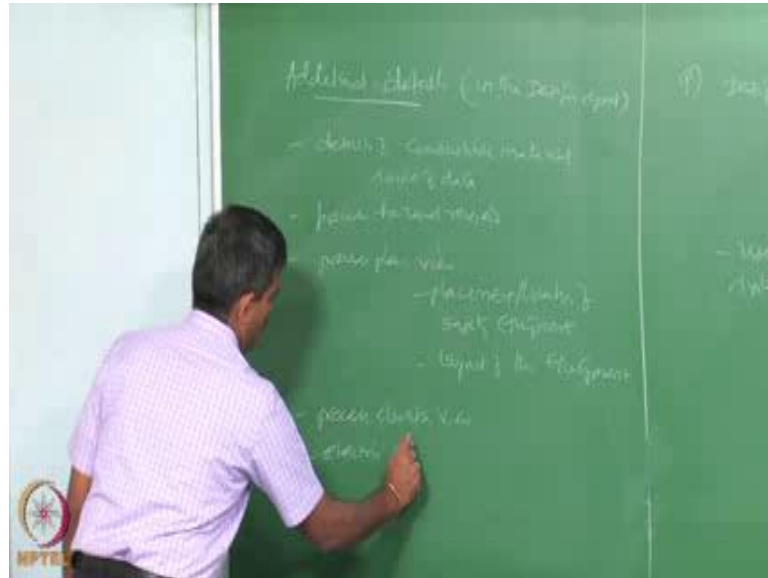 Additional details (in the Design report)
- details of combustible material
source of data
- process
- process plan view
- placement/location of
safety equipment
- layout of the Equipment
- process elevation view
- electri
II)
NPTEL